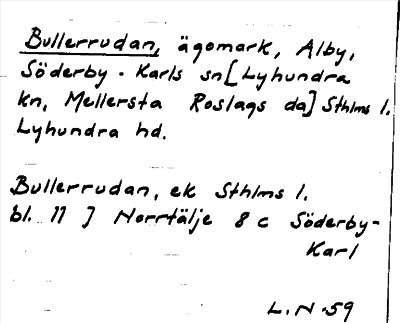 Bullerrudan, ägomark, Alby,
Söderby-Karls sn [Lyhundra
kn, Mellersta Roslags da] Sthlms l.
Lyhundra hd.
Bullerrudan, ek Sthlms l.
bl. 11 J Norrtälje 8 c Söderby-
Karl
L.N-59